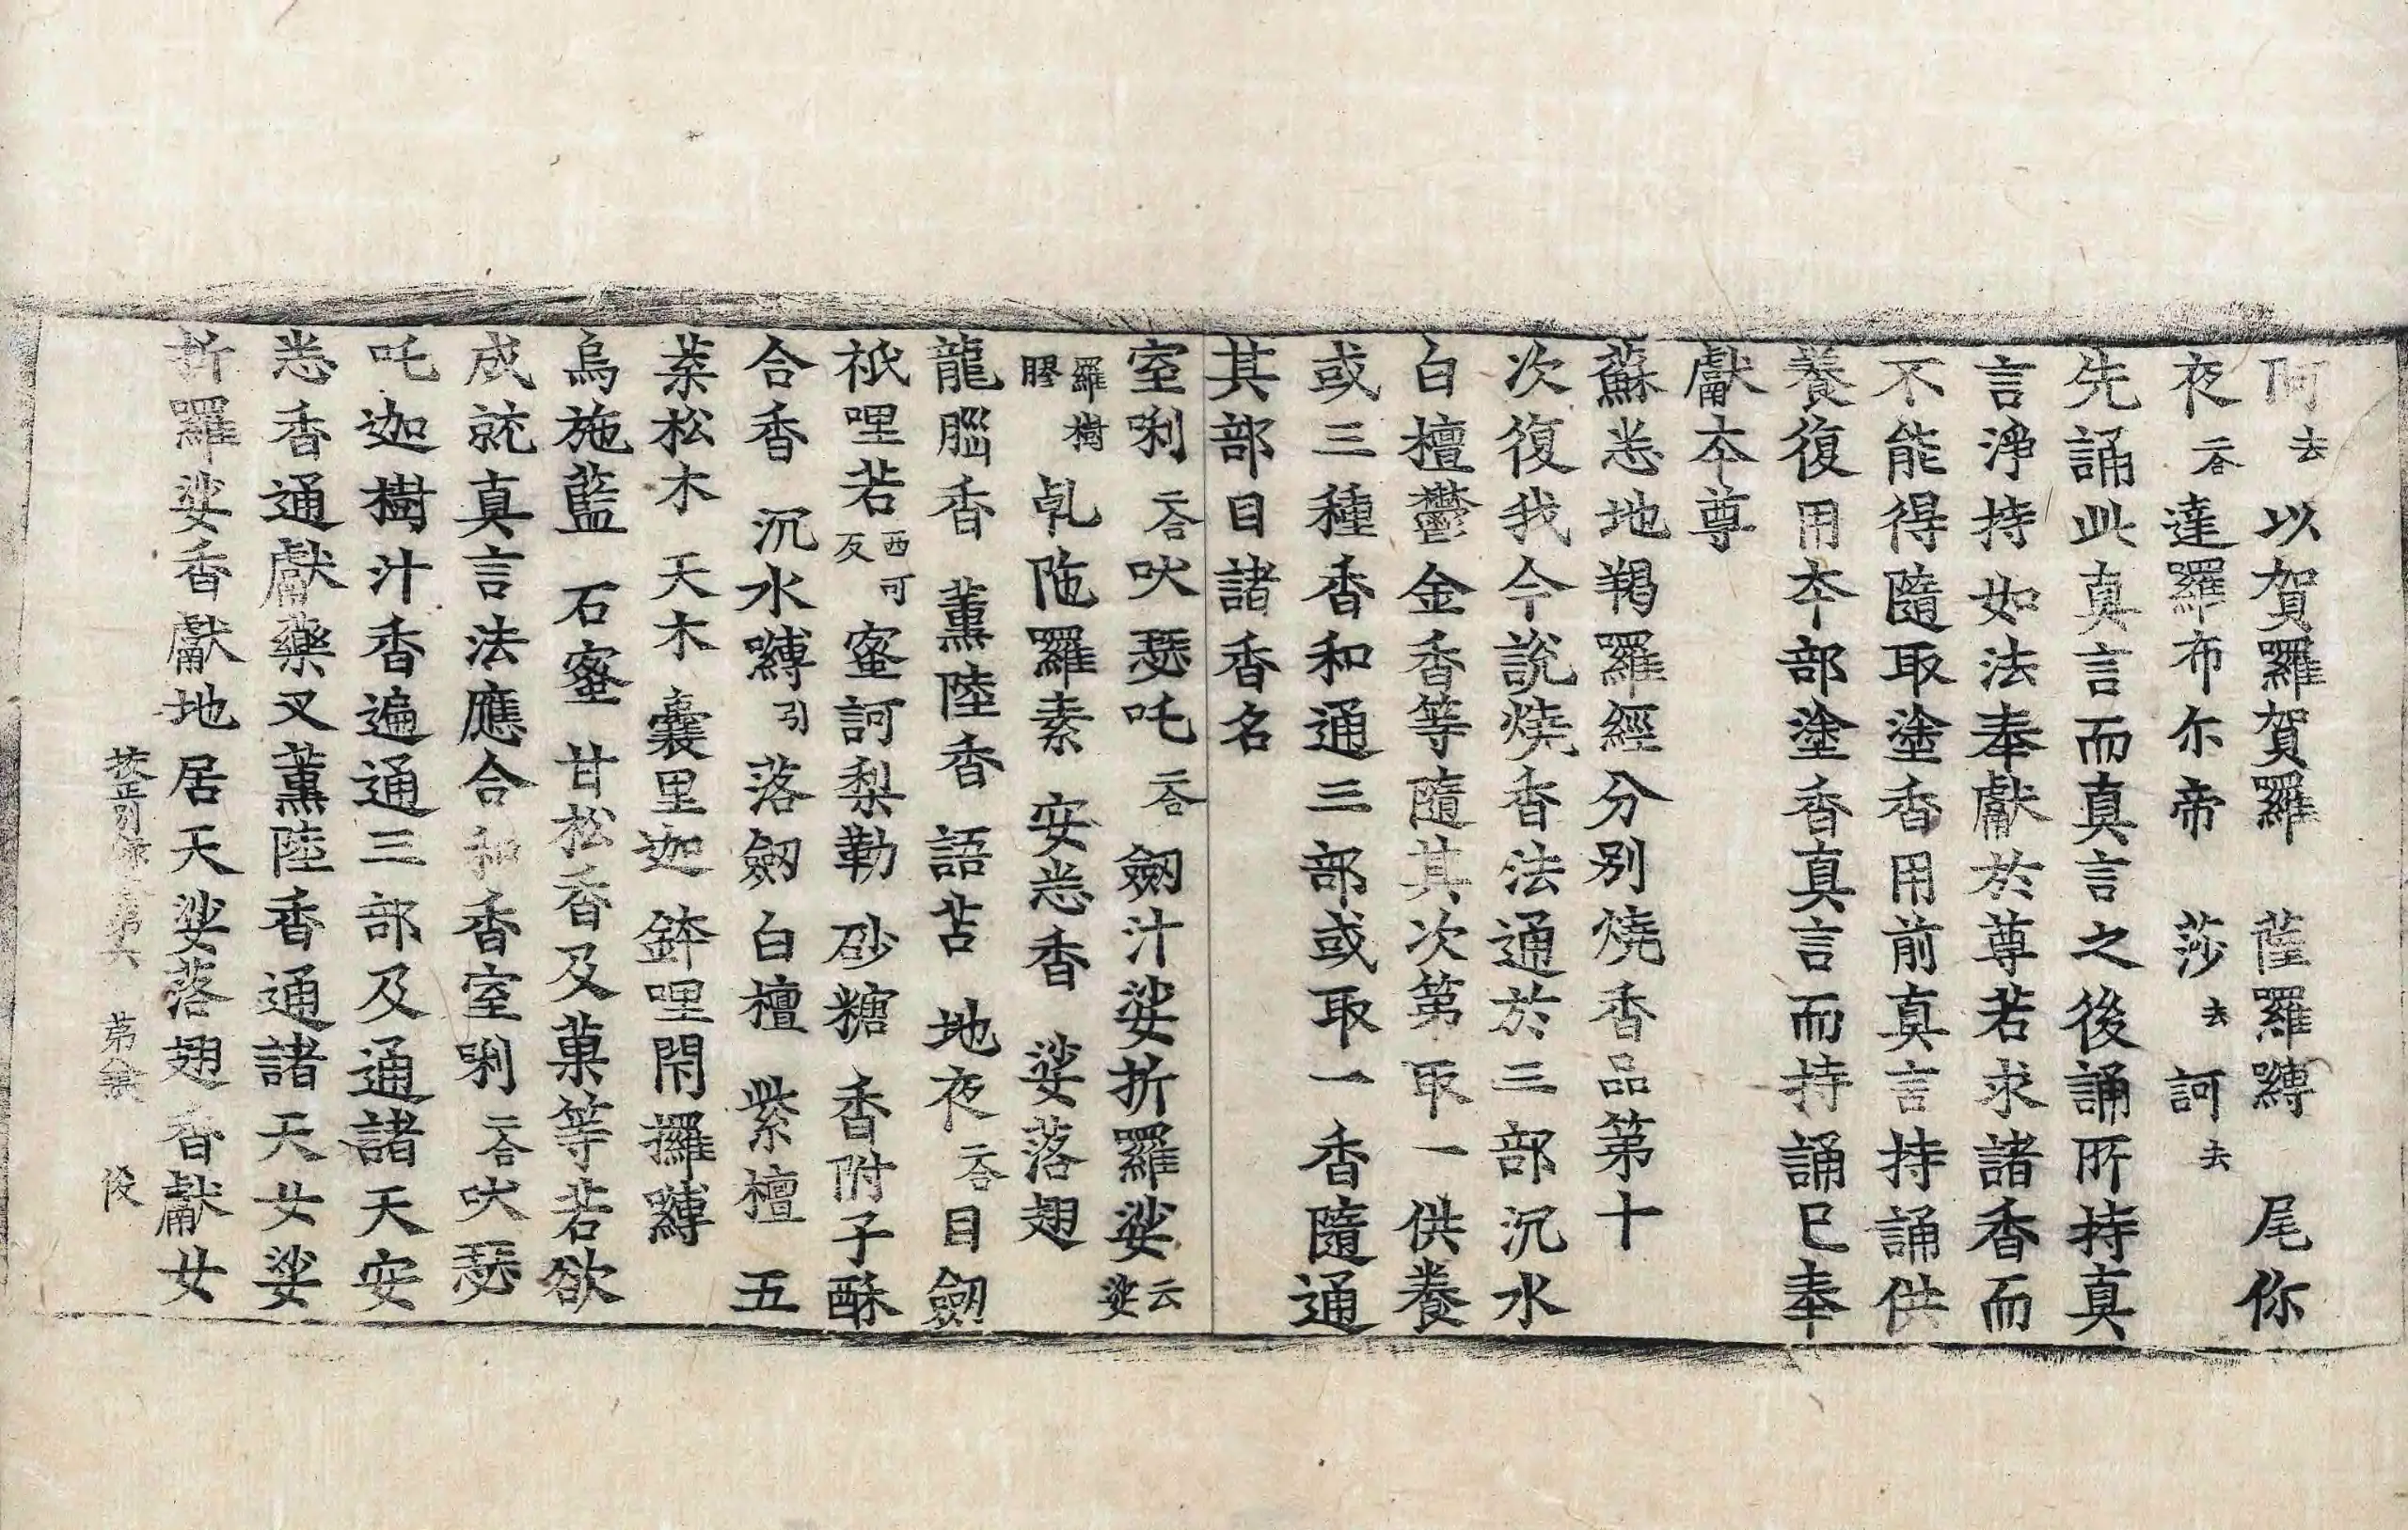 阿去以賀羅賀羅 薩羅羅嚩 尾你
夜二合達羅布尒帝 莎去訶去
先誦此真言而真言之後誦所持真
言淨持如法奉獻於尊若求諸香而
不能得隨取塗香用前真言持誦供
養復用本部塗香真言而持誦已奉
獻本尊
蘇悉地羯羅經分別燒香品第十
次復我今說燒香法通於三部沉水
白檀鬱金香等隨其次第取一供養
或三種香和通三部或取一香隨通
其部目諸香名
室唎二合吠瑟吒二合劒汁娑折羅娑云娑
羅樹膠乹陁羅素 安悉香 娑落翅
龍腦香 薰陸香 語苫 地夜二合目劒
祇哩若西可反蜜訶梨勒 砂糖 香附子酥
合香 沉水嚩引落劒白檀 紫檀 五
葉松木 天木 囊里迦 鉢哩閇攞嚩
烏施藍 石蜜 甘松香及菓等若欲
成就真言法應合和香室唎二合吠瑟
吒迦樹汁香遍通三部及通諸天安
悉香通獻藥叉薰陸香通諸天女娑
折羅娑香獻地居天娑落翅香獻女